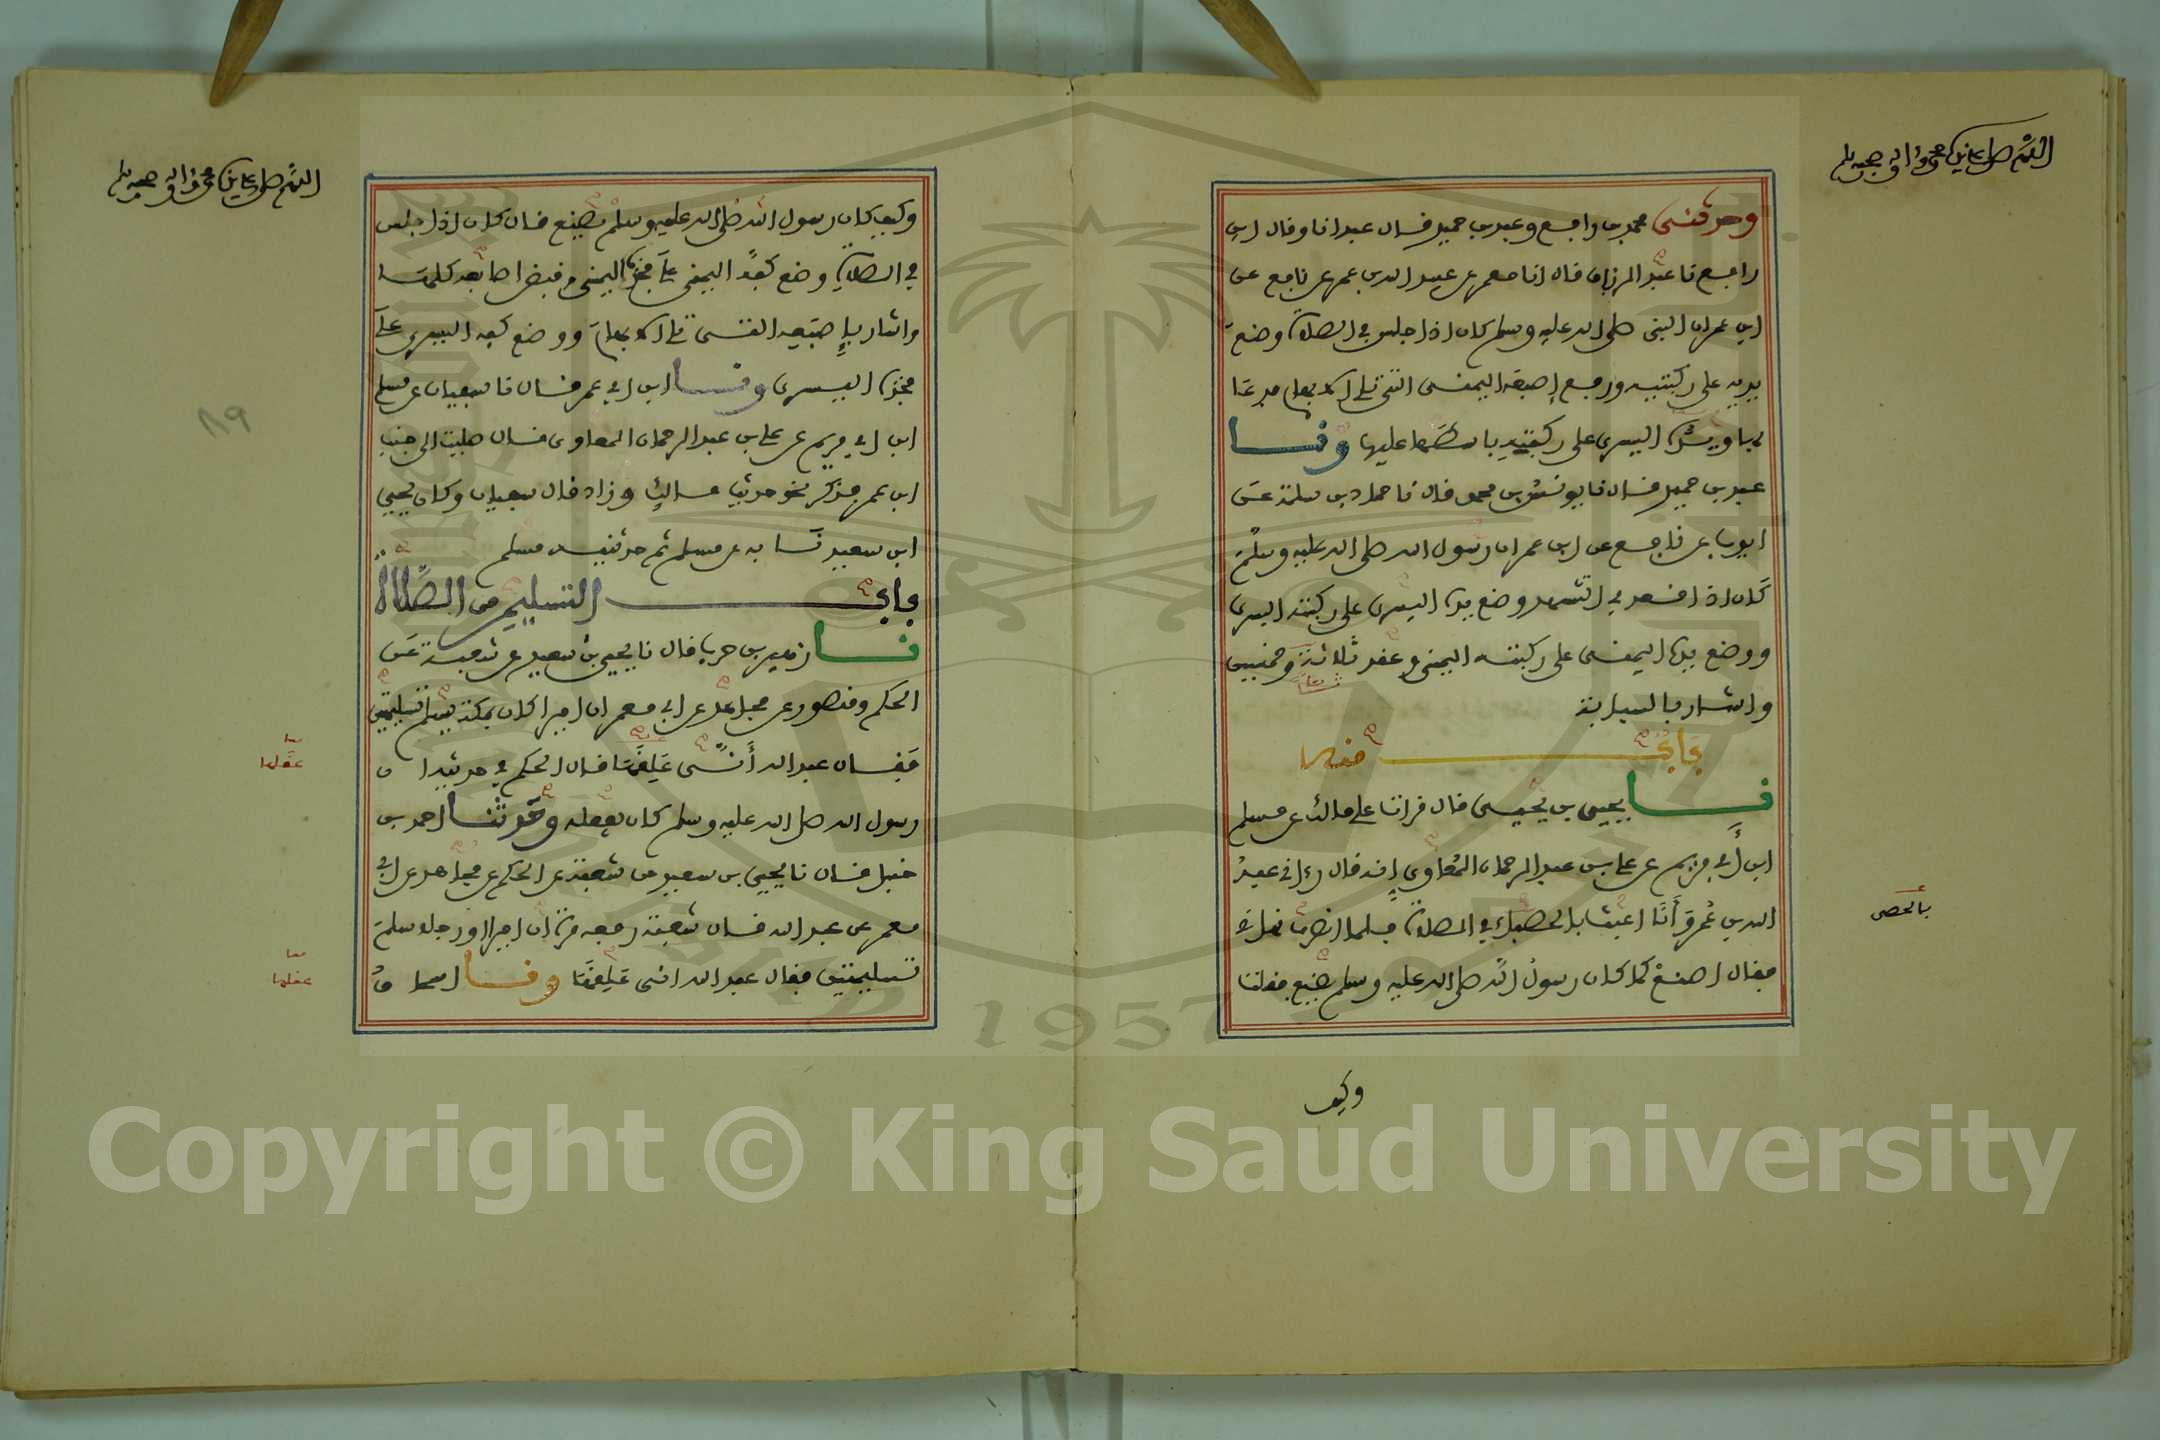 اللهم صل على سيدنا محمد وءاله وصحبه وسلم
وحدثني محمد بن رافع وعبد بن حميد قال عبد انا وقال ابن
رافع نا عبد الرزاق قال انا معمر عن عبيد الله بن عمر عن نافع عن
ابن عمر ان النبي صلى الله عليه وسلم كان اذا جلس في الصلاة وضع
يديه على ركبتيه ورفع إصبعه اليمنى التي تلي الابهام فدعا
بها ويده اليسرى على ركبته باسطها عليها ونا
عبد بن حميد قال نا يونس بن محمد قال نا حماد بن سلمة عن
ايوب عن نافع عن ابن عمر ان رسول الله صلى الله عليه وسلم
كان اذا قعد في التشهد وضع يده اليسرى على ركبته اليسرى
ووضع يده اليمنى على ركبته اليمنى وعقد ثلاثة وخمسين
واشار بالسبابة
باب منه
نا يحيى بن يحيى قال قرات على مالك عن مسلم
ابن أبي مريم عن علي بن عبد الرحمان المعاوي إنه قال رءاني عبد
الله بن عمر وأنا اعبث بالحصباء في الصلاة فلما انصرف نهاني
بالحصى
فقال اصنع كما كان رسول الله صلى الله عليه وسلم يصنع فقلت
وكيف
اللهم صل على سيدنا محمد وءاله وصحبه وسلم
وكيف كان رسول الله صلى الله عليه وسلم يصنع قال كان اذا جلس
في الصلاة وضع كفه اليمنى على فخذه اليمنى وقبض اصابعه كلها
واشار بإصبعه التي تلي الابهام ووضع كفه اليسرى على
فخذه اليسرى ونا ابن ابي عمر قال نا سفيان عن مسلم
٨٩
ابن ابي مريم عن علي بن عبد الرحمان المعاوي قال صليت الى جنب
ابن عمر فذكر نحو حديث مالك وزاد قال سفيان وكان يحيى
ابن سعيد نا به عن مسلم ثم حدثنيه مسلم
باب التسليم من الصلاة
نا زهير بن حرب قال نا يحيى بن سعيد عن شعبة عن
الحكم ومنصور عن مجاهد عن ابي معمر ان اميرا كان بمكة يسلم تسليمتين
فقال عبد الله أنى علقها قال الحكم في حديثه ان
عقلها
رسول الله صلى الله عليه وسلم كان يفعله وحدثنا احمد بن
حنبل قال نا يحيى بن سعيد عن شعبة عن الحكم عن مجاهد عن ابي
معمر عن عبد الله قال شعبة رفعه مرة ان اميرا او رجلا سلم
تسليمتين فقال عبد الله انى علقها ونا اسحاق
عقلها
1957
Copyright © King Saud University